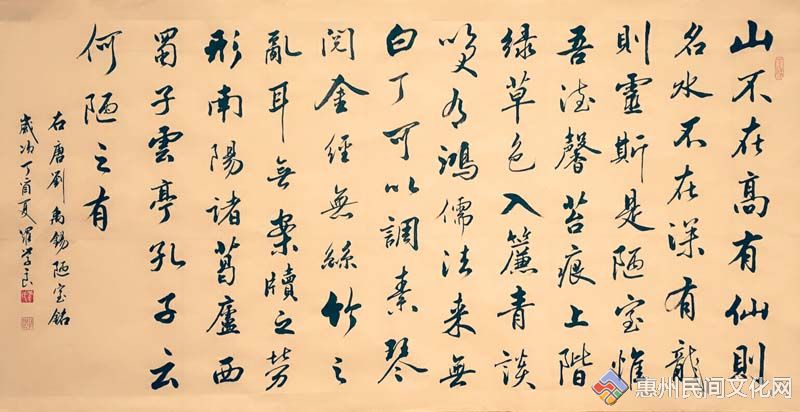 山不在高有仙則
名水不在深有龍
則靈斯是陋室惟
吾德馨苔痕上階
緑草色入簾青談
笑有鴻儒往来無
白丁可以調素琴
閱金經無絲竹之
亂耳無案牘之勞
形南陽諸葛廬西
蜀子雲亭孔子云
何陋之有
右唐劉禹錫陋室銘
歲次丁酉夏羅学良
惠州民间文化网